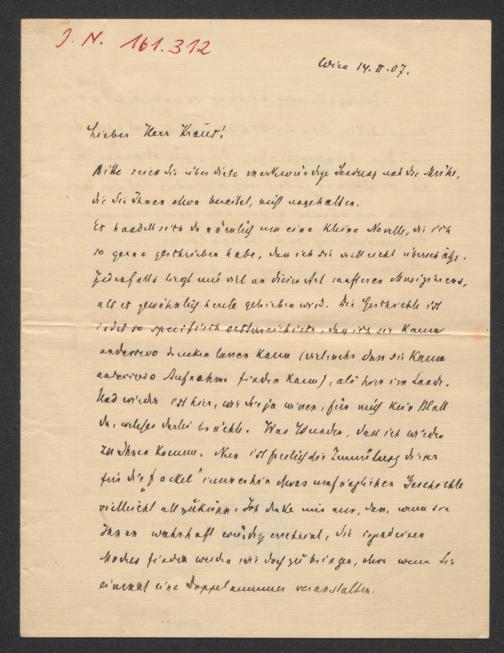 J. N. 161.312
Wien 14. II. 07.
Lieber Herr Kraus!
Bitte seien Sie über diese merkwürdige Sendung und die Mühe,
die sie Ihnen etwa bereitet, nicht ungehalten.
Es handelt sich da nämlich um eine kleine Novelle, die ich
so gerne geschrieben habe, dass ich sie vielleicht überschätze.
Jedenfalls liegt mir viel an dieser Art sanfteren Musizierens,
als es gewöhnlich heute getrieben wird. Die Geschichte ist
indes so specifisch oesterreichisch, dass ich sie kaum
anderswo drucken lassen kann (vielmehr dass sie kaum
anderswo Aufnahme finden kann), als hier im Lande.
Und wieder ist hier, wie Sie ja wissen, für mich kein Blatt
da, welches derlei brächte. Was Wunder, dass ich wieder
zu Ihnen komme. Nun ist freilich die Zumutung dieser
für die „Fackel" immerhin etwas umfänglichen Geschichte
vielleicht allzukühn. Ich denke mir nur, dass, wenn sie
Ihnen wahrhaft würdig erscheint, Sie irgendeinen
Modus finden werden sie doch zu bringen, etwa wenn Sie
einmal eine Doppelnummer veranstalten.